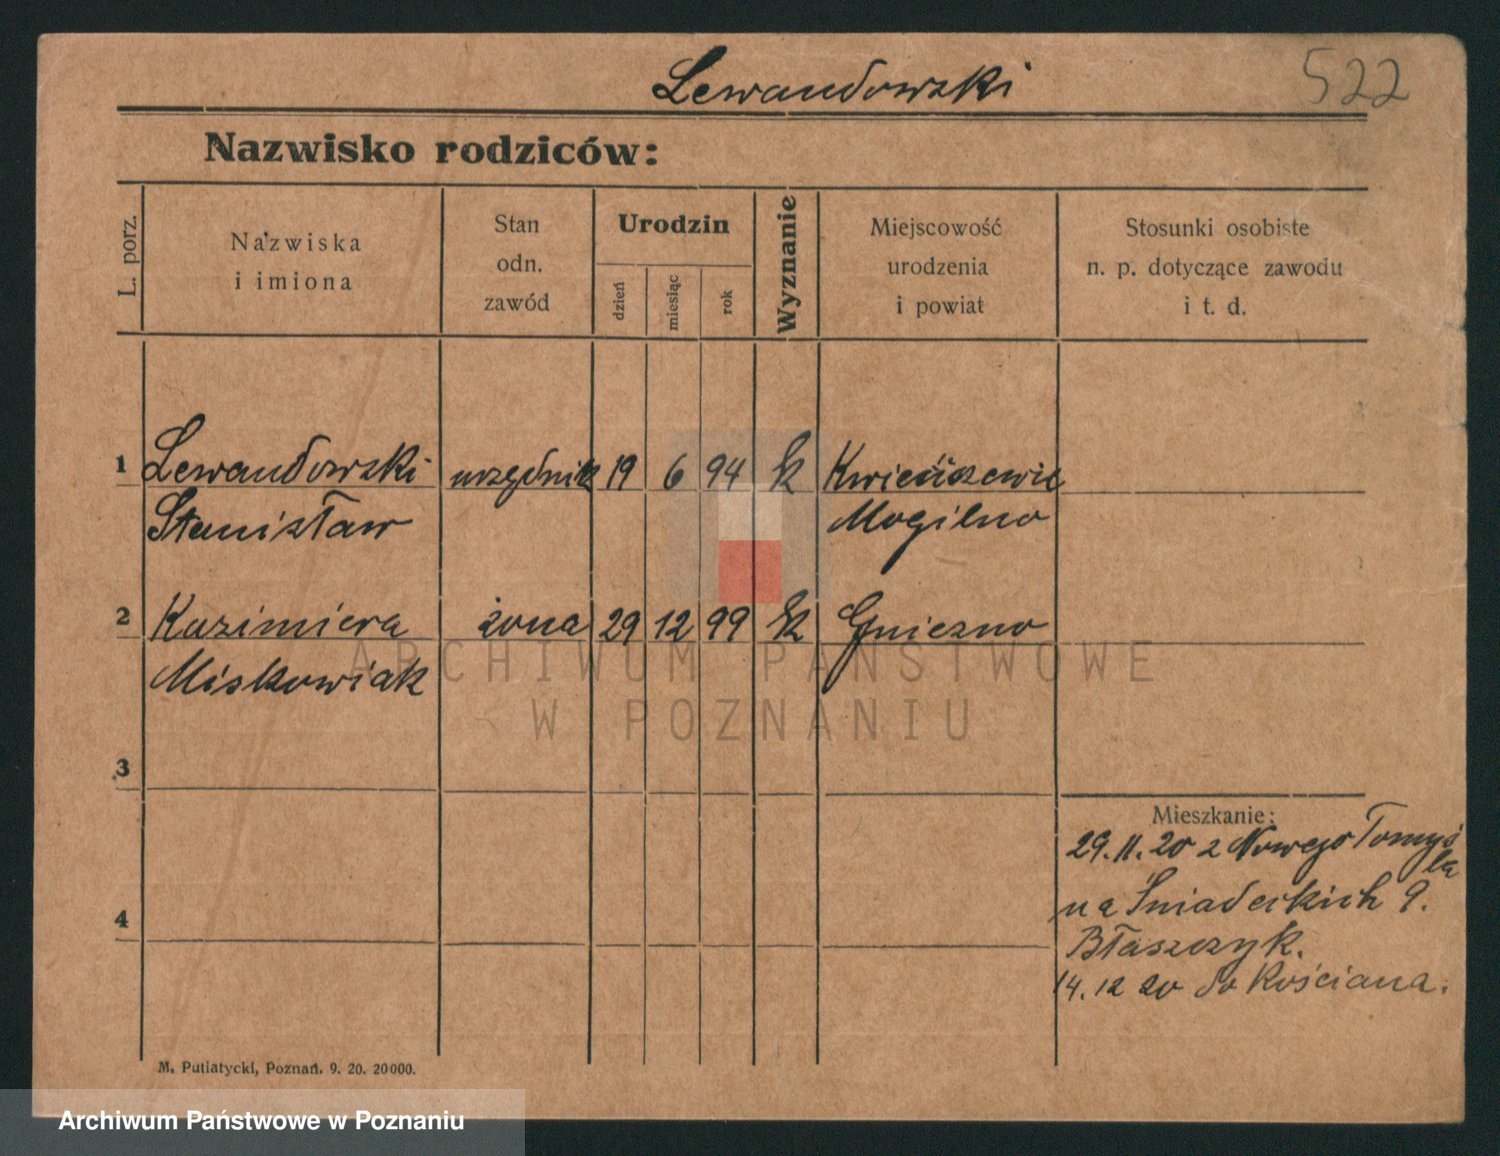 Lewandowski
522
Nazwisko rodziców:
L. porz.
Nazwiska
i imiona
Stan
odn.
zawód
Urodzin
dzień
miesiąc
rok
Wyznanie
Miejscowość
urodzenia
i powiat
Stosunki osobiste
n. p. dotyczące zawodu
i t. d.
1 Lewandowski urzędnik 19 6 94 k Kwieciszewic
Stanisław Mogilno
2 Kazimiera żona 29 12 99 k Gniezno
Miskowiak
ARCHIWUM PAŃSTWOWE
W POZNANIU
3
Mieszkanie:
29.11.20 z Nowego Tomyś
la
na Śniadeckich 9.
4
Błaszczyk.
14.12 20 do Kościana.
M. Putiatycki, Poznań. 9. 20. 20000.
Archiwum Państwowe w Poznaniu